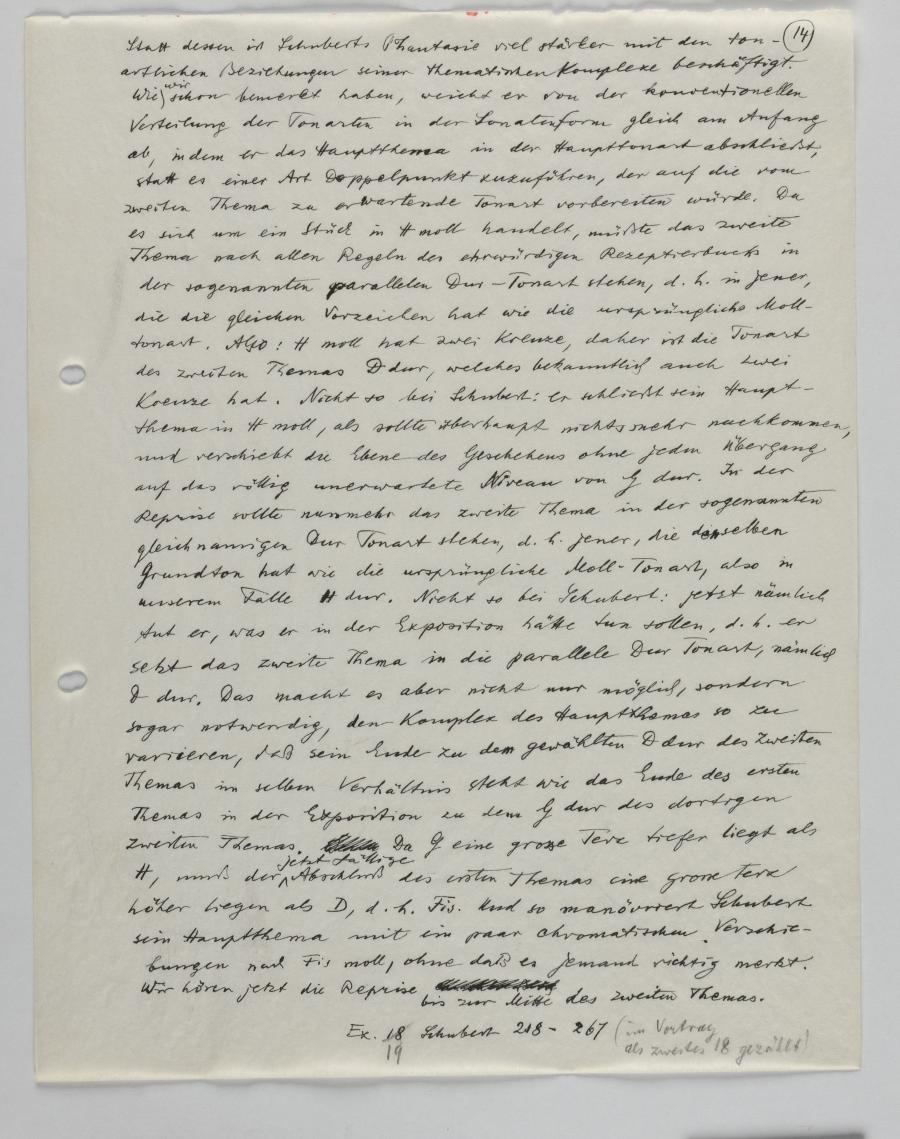 14
Statt dessen ist Schuberts Phantasie viel stärker mit den ton-
artlichen Beziehungen seiner thematischen Komplexe beschäftigt.
Wie wir schon bemerkt haben, weicht er von der konventionellen
Verteilung der Tonarten in der Sonatenform gleich am Anfang
ab, indem er das Hauptthema in der Haupttonart abschließt,
statt es einer Art Doppelpunkt zuzuführen, der auf die vom
zweiten Thema zu erwartende Tonart vorbereiten würde. Da
es sich um ein Stück in H moll handelt, müßte das zweite
Thema nach allen Regeln des ehrwürdigen Rezeptierbuchs in
der sogenannten parallelen Dur-Tonart stehen, d. h. in jener,
die die gleichen Vorzeichen hat wie die ursprüngliche Moll-
tonart. Also: H moll hat zwei Kreuze, daher ist die Tonart
des zweiten Themas D dur, welches bekanntlich auch zwei
Kreuze hat. Nicht so bei Schubert: er schließt sein Haupt-
thema in H moll, als sollte überhaupt nichts mehr nachkommen,
und verschiebt die Ebene des Geschehens ohne jeden Übergang
auf das völlig unerwartete Niveau von G dur. In der
Reprise sollte nunmehr das zweite Thema in der sogenannten
gleichnamigen Dur Tonart stehen, d. h. jener, die denselben
Grundton hat wie die ursprüngliche Moll-Tonart, also in
unserem Falle H dur. Nicht so bei Schubert: jetzt nämlich
tut er, was er in der Exposition hätte tun sollen, d. h. er
setzt das zweite Thema in die parallele Dur Tonart, nämlich
D dur. Das macht es aber nicht nur möglich, sondern
sogar notwendig, den Komplex des Hauptthemas so zu
variieren, daß sein Ende zu dem gewählten D dur des zweiten
Themas im selben Verhältnis steht wie das Ende des ersten
Themas in der Exposition zu dem G dur des dortigen
zweiten Themas. Da G eine grosse Terz tiefer liegt als
H, muß der jetzt fällige Abschluß des ersten Themas eine grosse Terz
höher liegen als D, d. h. Fis. Und so manövriert Schubert
sein Hauptthema mit ein paar chromatischen Verschie-
bungen nach Fis moll, ohne daß es jemand richtig merkt.
Wir hören jetzt die Reprise bis zur Mitte des zweiten Themas.
Ex. 18 Schubert 218 - 267 (im Vortrag
19 als zweites 18 gezählt)